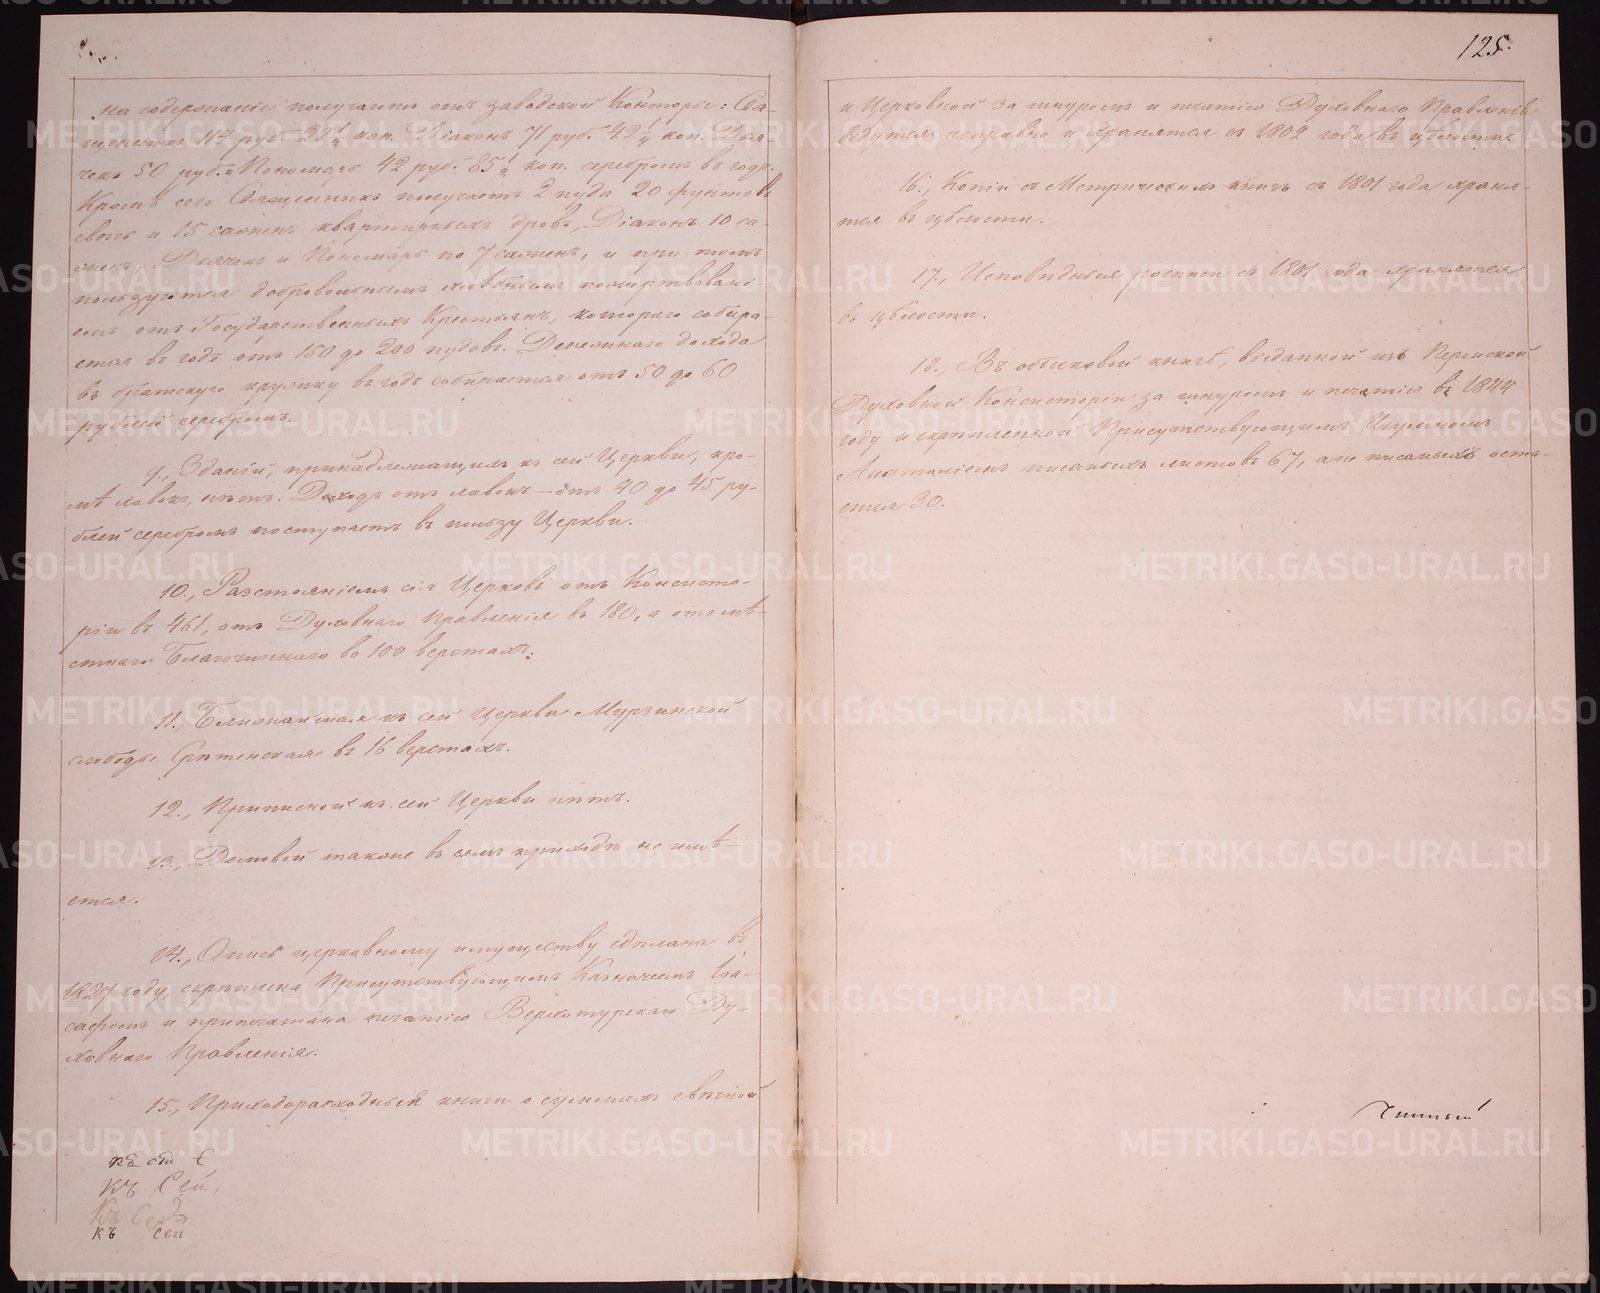 125.
на содержаніе получаютъ отъ заводской Конторы: Свя-
щенникъ 114 руб. 28 1/4 коп. Діаконъ 71 руб. 42 1/4 коп. Дья-
чекъ 50 руб. и Пономарь 42 руб. 85 1/4 коп. серебромъ въ годъ.
Кромѣ сего Священникъ получаетъ 2 пуда 20 фунтовъ
свѣчъ и 15 саженъ квартирныхъ дровъ, Діаконъ 10 са-
женъ, Дьячекъ и Пономарь по 7 саженъ, и при томъ
пользуются добровольнымъ хлѣбнымъ пожертвовані-
емъ отъ Государственныхъ Крестьянъ, котораго собира-
ется въ годъ отъ 150 до 200 пудовъ. Денежнаго дохода
въ братскую кружку въ годъ собирается отъ 50 до 60
рублей серебромъ.
9., Зданій, принадлежащихъ къ сей Церкви, кро-
мѣ лавокъ, нѣтъ. Доходъ отъ лавокъ - отъ 40 до 45 ру-
блей серебромъ поступаетъ въ пользу Церкви.
10., Разстояніемъ сія Церковь отъ Консисто-
ріи въ 461, отъ Духовнаго Правленія въ 180, а отъ мѣ-
стнаго Благочиннаго во 100 верстахъ.
11., Ближайшая къ сей Церкви Мурзинской
слободы Срѣтенская въ 16 верстахъ.
12., Приписной къ сей Церкви нѣтъ.
13., Домовой также въ семъ приходѣ не имѣ-
ется.
14., Опись церковному имуществу сдѣлана въ
1827 году, скрѣплена Присутствующимъ Казначеемъ Іоа-
сафомъ и припечатана печатію Верхотурскаго Ду-
ховнаго Правленія.
15., Приходорасходныя книги о суммахъ свѣчной
къ сей
къ сей
къ сей
и Церковной за шнуромъ и печатію Духовнаго Правленія
ведутся исправно и хранятся съ 1802 года въ цѣлости.
16., Копіи съ Метрическихъ книгъ съ 1801 года храня-
тся въ цѣлости.
17., Исповѣдныя росписи съ 1801 года хранятся
въ цѣлости.
18., Въ обыскной книгѣ, выданной изъ Пермской
Духовной Консисторіи за шнуромъ и печатію въ 1844
году и скрѣпленной Присутствующимъ Игумномъ
Анатоліемъ писаныхъ листовъ 67, а не писаныхъ оста-
ется 30.